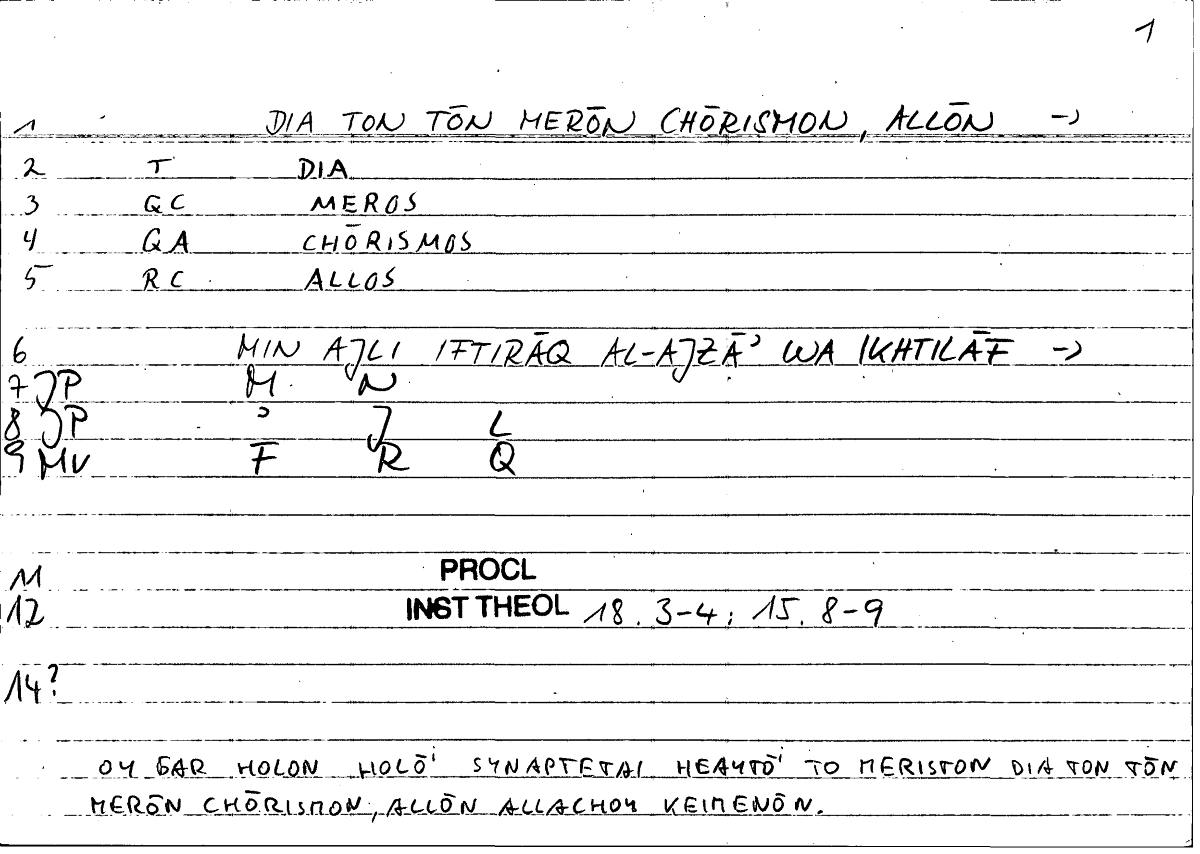 1
1 DIA TON TŌN MERŌN CHŌRISMON, ALLŌN →
2 T DIA
3 QC MEROS
4 QA CHŌRISMOS
5 RC ALLOS
6 MIN AJLI IFTIRĀQ AL-AJZĀʾ WA IKHTILĀF →
7 JP M N
8 JP ʾ J L
9 MV F R Q
11 PROCL
12 INST THEOL 18. 3-4; 15. 8-9
14?
OY GAR HOLON HOLŌⁱ SYNAPTETAI HEAYTŌⁱ TO MERISTON DIA TON TŌN
MERŌN CHŌRISMON, ALLŌN ALLACHOY KEIMENŌN.